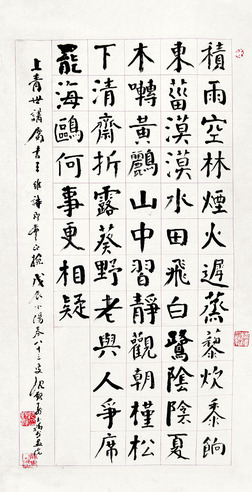 積雨空林煙火遲蒸藜炊黍餉
東菑漠漠水田飛白鷺陰陰夏
木囀黃鸝山中習靜觀朝槿松
下清齋折露葵野老與人爭席
罷海鷗何事更相疑
上青世講屬書王維詩即希正 戊辰小陽春八十三叟